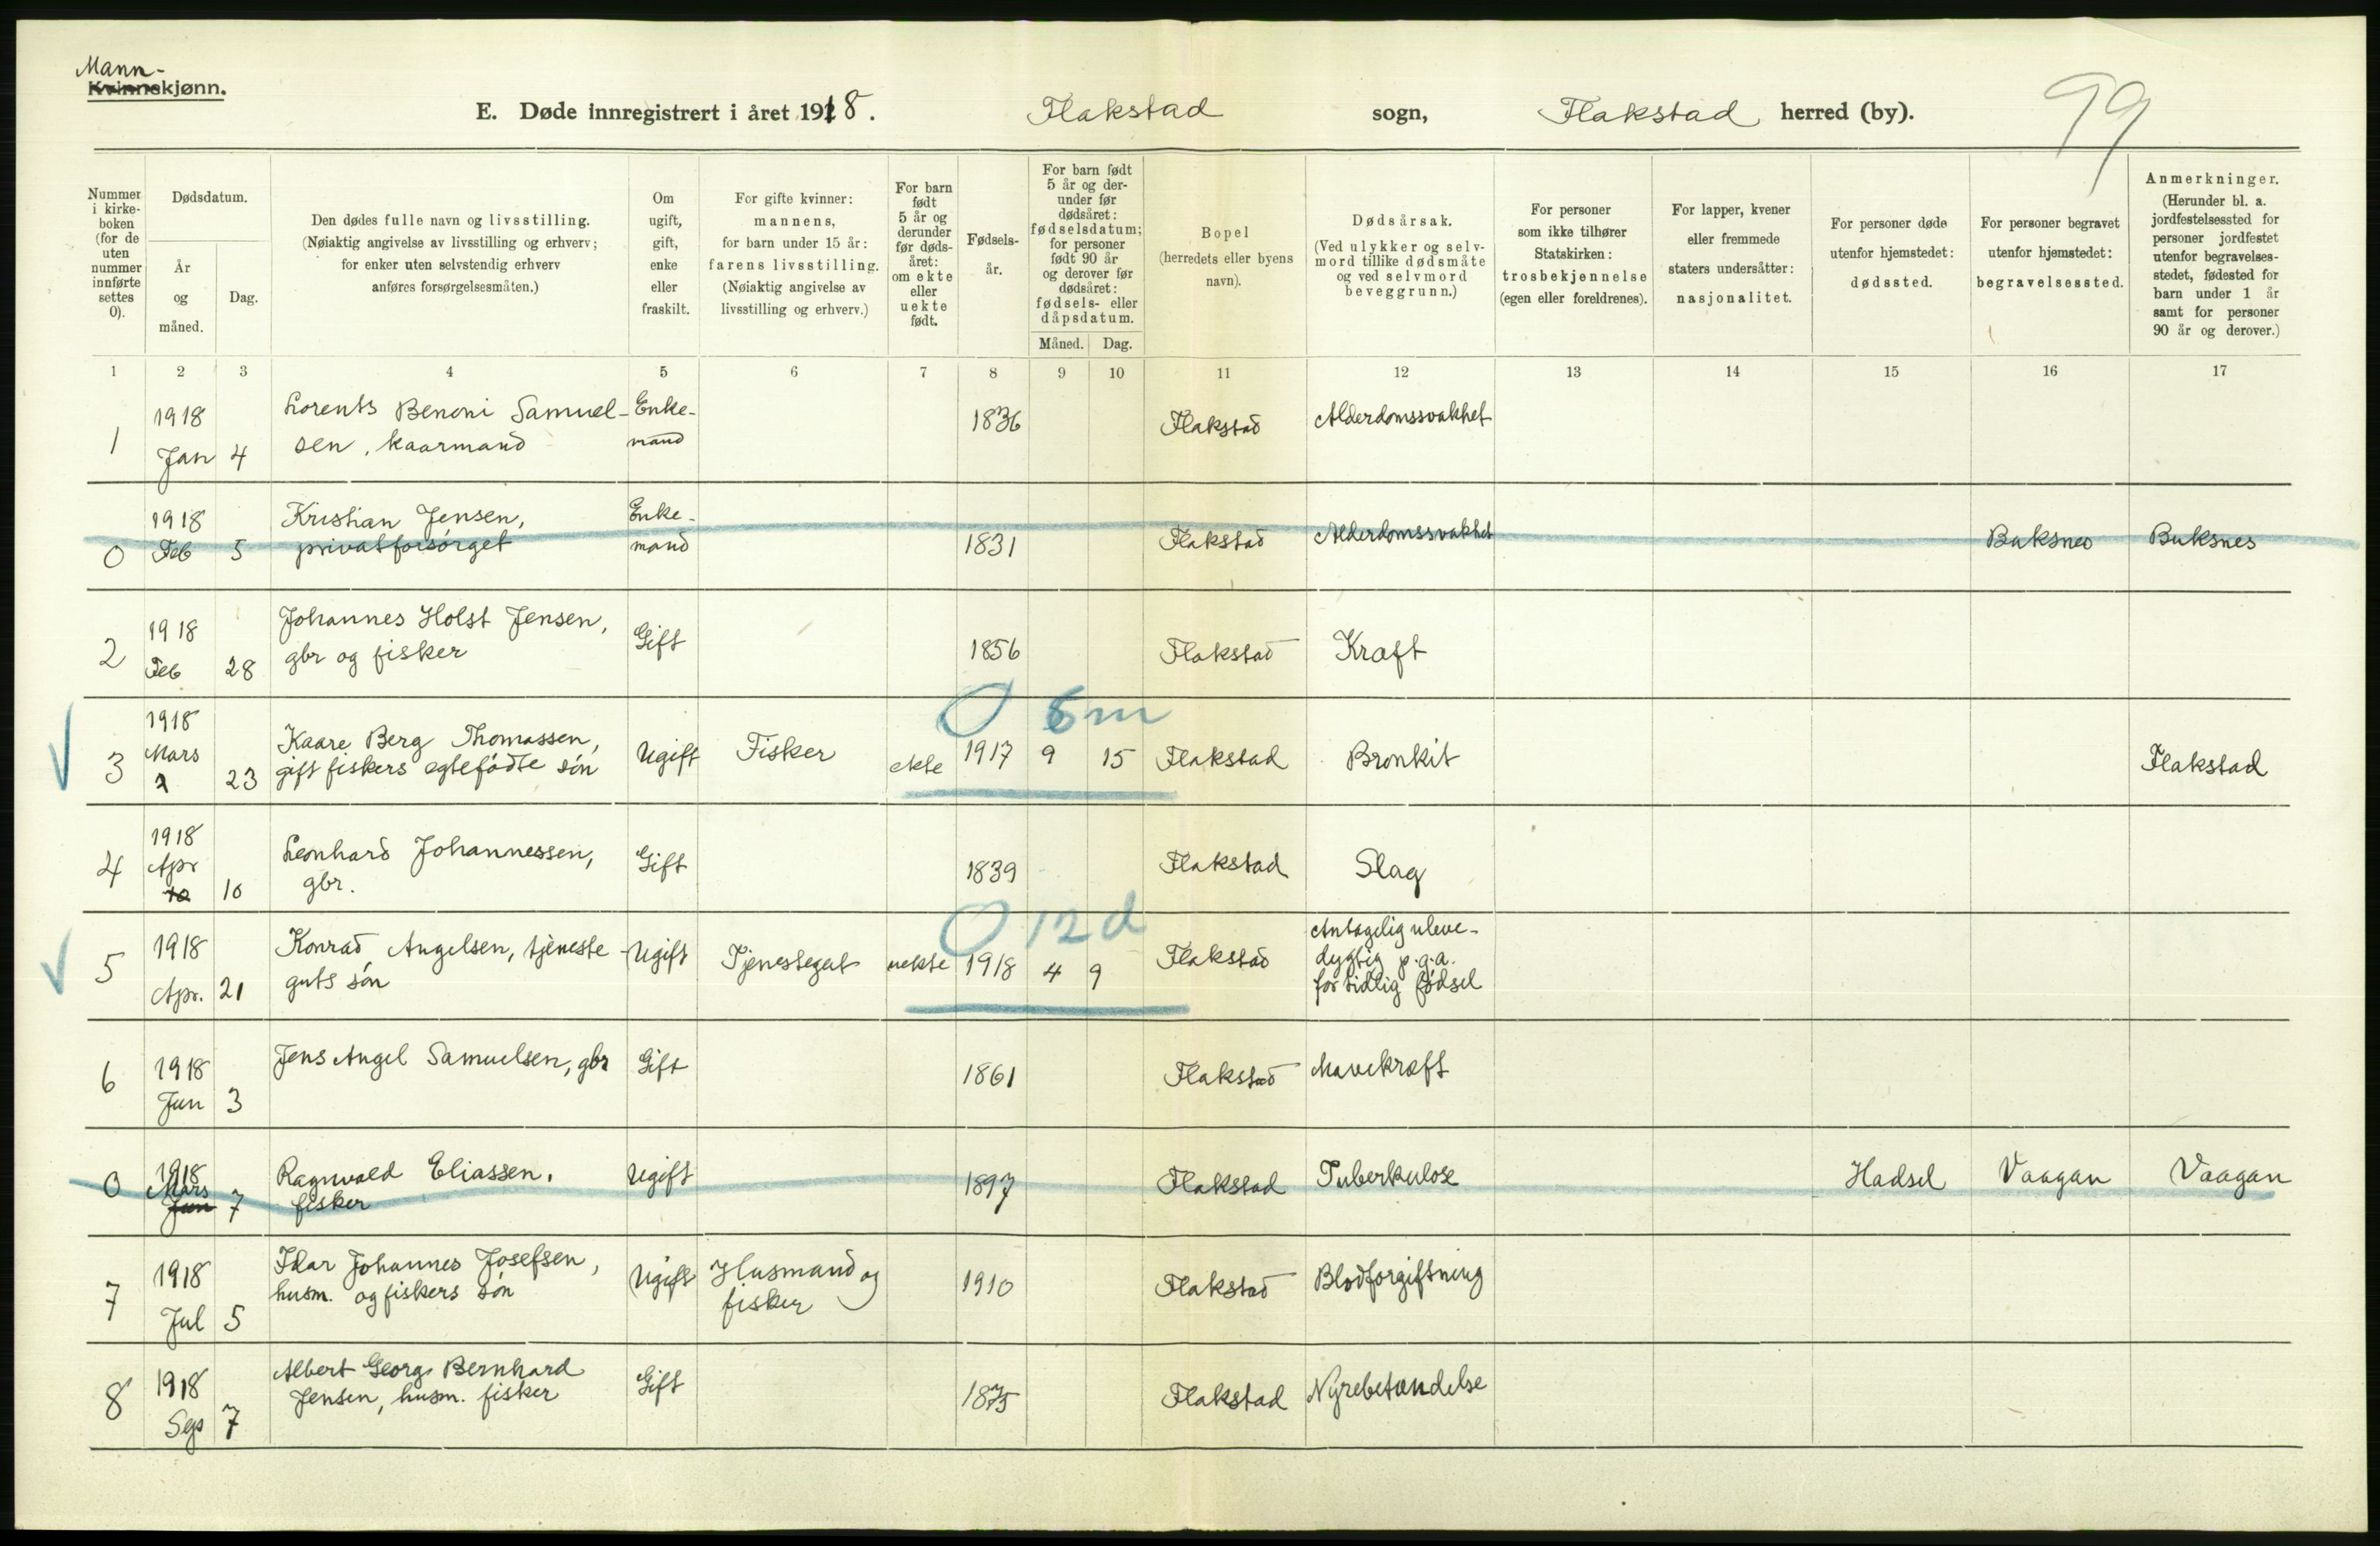 Mann-
Kvinnekjønn.
E. Døde innregistrert i året 1918. Flakstad sogn, Flakstad herred (by). 99
Nummer i kirkeboken (for de uten nummer innførte settes 0).
Dødsdatum.
År og måned.
Dag.
Den dødes fulle navn og livsstilling.
(Nøiaktig angivelse av livsstilling og erhverv;
for enker uten selvstendig erhverv
anføres forsørgelsesmåten.)
Om ugift, gift, enke eller fraskilt.
For gifte kvinner:
mannens,
for barn under 15 år:
farens livsstilling.
(Nøiaktig angivelse av
livsstilling og erhverv.)
For barn født 5 år og derunder før dødsåret: om ekte eller uekte født.
Fødselsår.
For barn født 5 år og derunder før dødsåret: fødselsdatum; for personer født 90 år og derover før dødsåret: fødsels- eller dåpsdatum.
Måned. Dag.
Bopel
(herredets eller byens
navn).
Dødsårsak.
(Ved ulykker og selvmord tillike dødsmåte
og ved selvmord
beveggrunn.)
For personer
som ikke tilhører
Statskirken:
trosbekjennelse
(egen eller foreldrenes).
For lapper, kvener
eller fremmede
staters undersåtter:
nasjonalitet.
For personer døde
utenfor hjemstedet:
dødssted.
For personer begravet
utenfor hjemstedet:
begravelsessted.
Anmerkninger.
(Herunder bl. a.
jordfestelsessted for
personer jordfestet
utenfor begravelsesstedet, fødested for
barn under 1 år
samt for personer
90 år og derover.)
1 2 3 4 5 6 7 8 9 10 11 12 13 14 15 16 17
1 1918 Jan 4 Lorents Benoni Samuelsen, kaarmand Enkemand 1836 Flakstad Alderdomssvakhet
0 1918 Feb 5 Kristian Jensen, privatforsørget Enkemand 1831 Flakstad Alderdomssvakhet Buksnes Buksnes
2 1918 Feb 28 Johannes Holst Jensen, gbr og fisker Gift 1856 Flakstad Kræft
0 6m
3 1918 Mars 23 Kaare Berg Thomassen, gift fiskers egtefødte søn Ugift Fisker ekte 1917 9 15 Flakstad Bronkit Flakstad
4 1918 Apr 10 10 Leonhard Johannessen, gbr. Gift 1839 Flakstad Slag
0 12d
5 1918 Apr. 21 Konrad Angelsen, tjenesteguts søn Ugift Tjenestegut uekte 1918 4 9 Flakstad Antagelig ulevedygtig p.g.a. for tidlig fødsel
6 1918 Jun 3 Jens Angel Samuelsen, gbr Gift 1861 Flakstad Mavekræft
0 1918 Mars Jun 7 Ragnvald Eliassen, fisker Ugift 1897 Flakstad Tuberkulose Hadsel Vaagan Vaagan
7 1918 Jul 5 Johannes Josefsen, husm. og fiskers søn Ugift Husmand og fisker 1910 Flakstad Blodforgiftning
8 1918 Sep 7 Albert Georg Bernhard Jensen, husm. fisker Gift 1875 Flakstad Nyrebetændelse